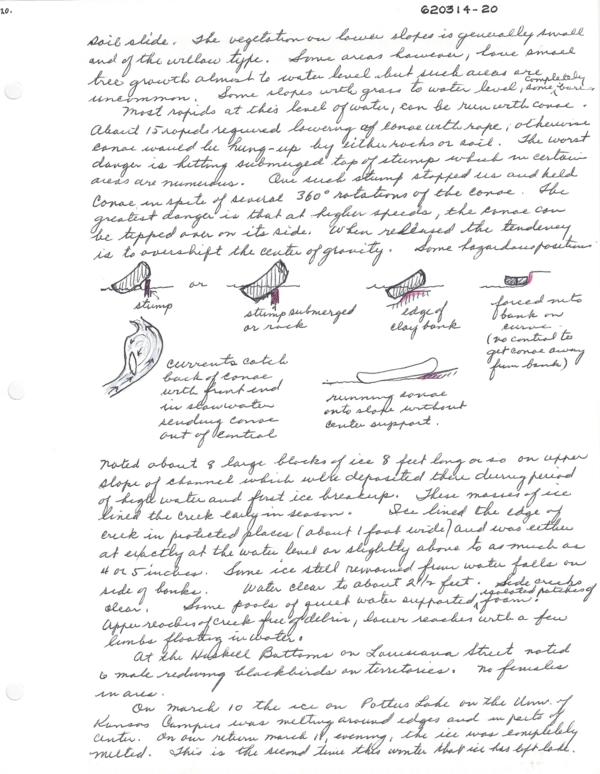 20.
620314-20
soil slide. The vegetation on lower slopes is generally small
and of the willow type. Some areas however, have small
tree growth almost to water level but such areas are
uncommon. Some slopes with grass to water level, some completely bare.
Most rapids at this level of water, can be run with canoe.
About 15 rapids required lowering of canoe with rope, otherwise
canoe would be hung-up by either rocks or soil. The worst
danger is hitting submerged top of stump which in certain
areas are numerous. One such stump stopped us and held
canoe in spite of several 360° rotations of the canoe. The
greatest danger is that at higher speeds, the canoe can
be tipped over on its side. When released the tendency
is to overshift the center of gravity. Some hazardous positions
stump
or
stump submerged
or rock
edge of
clay bank
forced into
bank on
curve
(no control to
get canoe away
from bank)
currents catch
back of canoe
with front end
in slow water
sending canoe
out of control
running canoe
onto slope without
center support.
Noted about 8 large blocks of ice 8 feet long or so on upper
slope of channel which were deposited there during period
of high water and first ice breakup. These masses of ice
lined the creek early in season. Ice lined the edge of
creek in protected places (about 1 foot wide) and was either
at exactly at the water level or slightly above to as much as
4 or 5 inches. Some ice still remained from water falls on
side of banks. Water clear to about 2 1/2 feet. Side creeks
clear. Some pools of quiet water supported isolated patches of foam.
Upper reaches of creek free of debris, lower reaches with a few
limbs floating in water.
At the Haskell Bottoms on Louisiana Street noted
6 male redwing blackbirds on territories. No females
in area.
On March 10 the ice on Potter Lake on the Univ. of
Kansas Campus was melting around edges and in parts of
center. On our return March 11, evening, the ice was completely
melted. This is the second time this winter that ice has left lake.